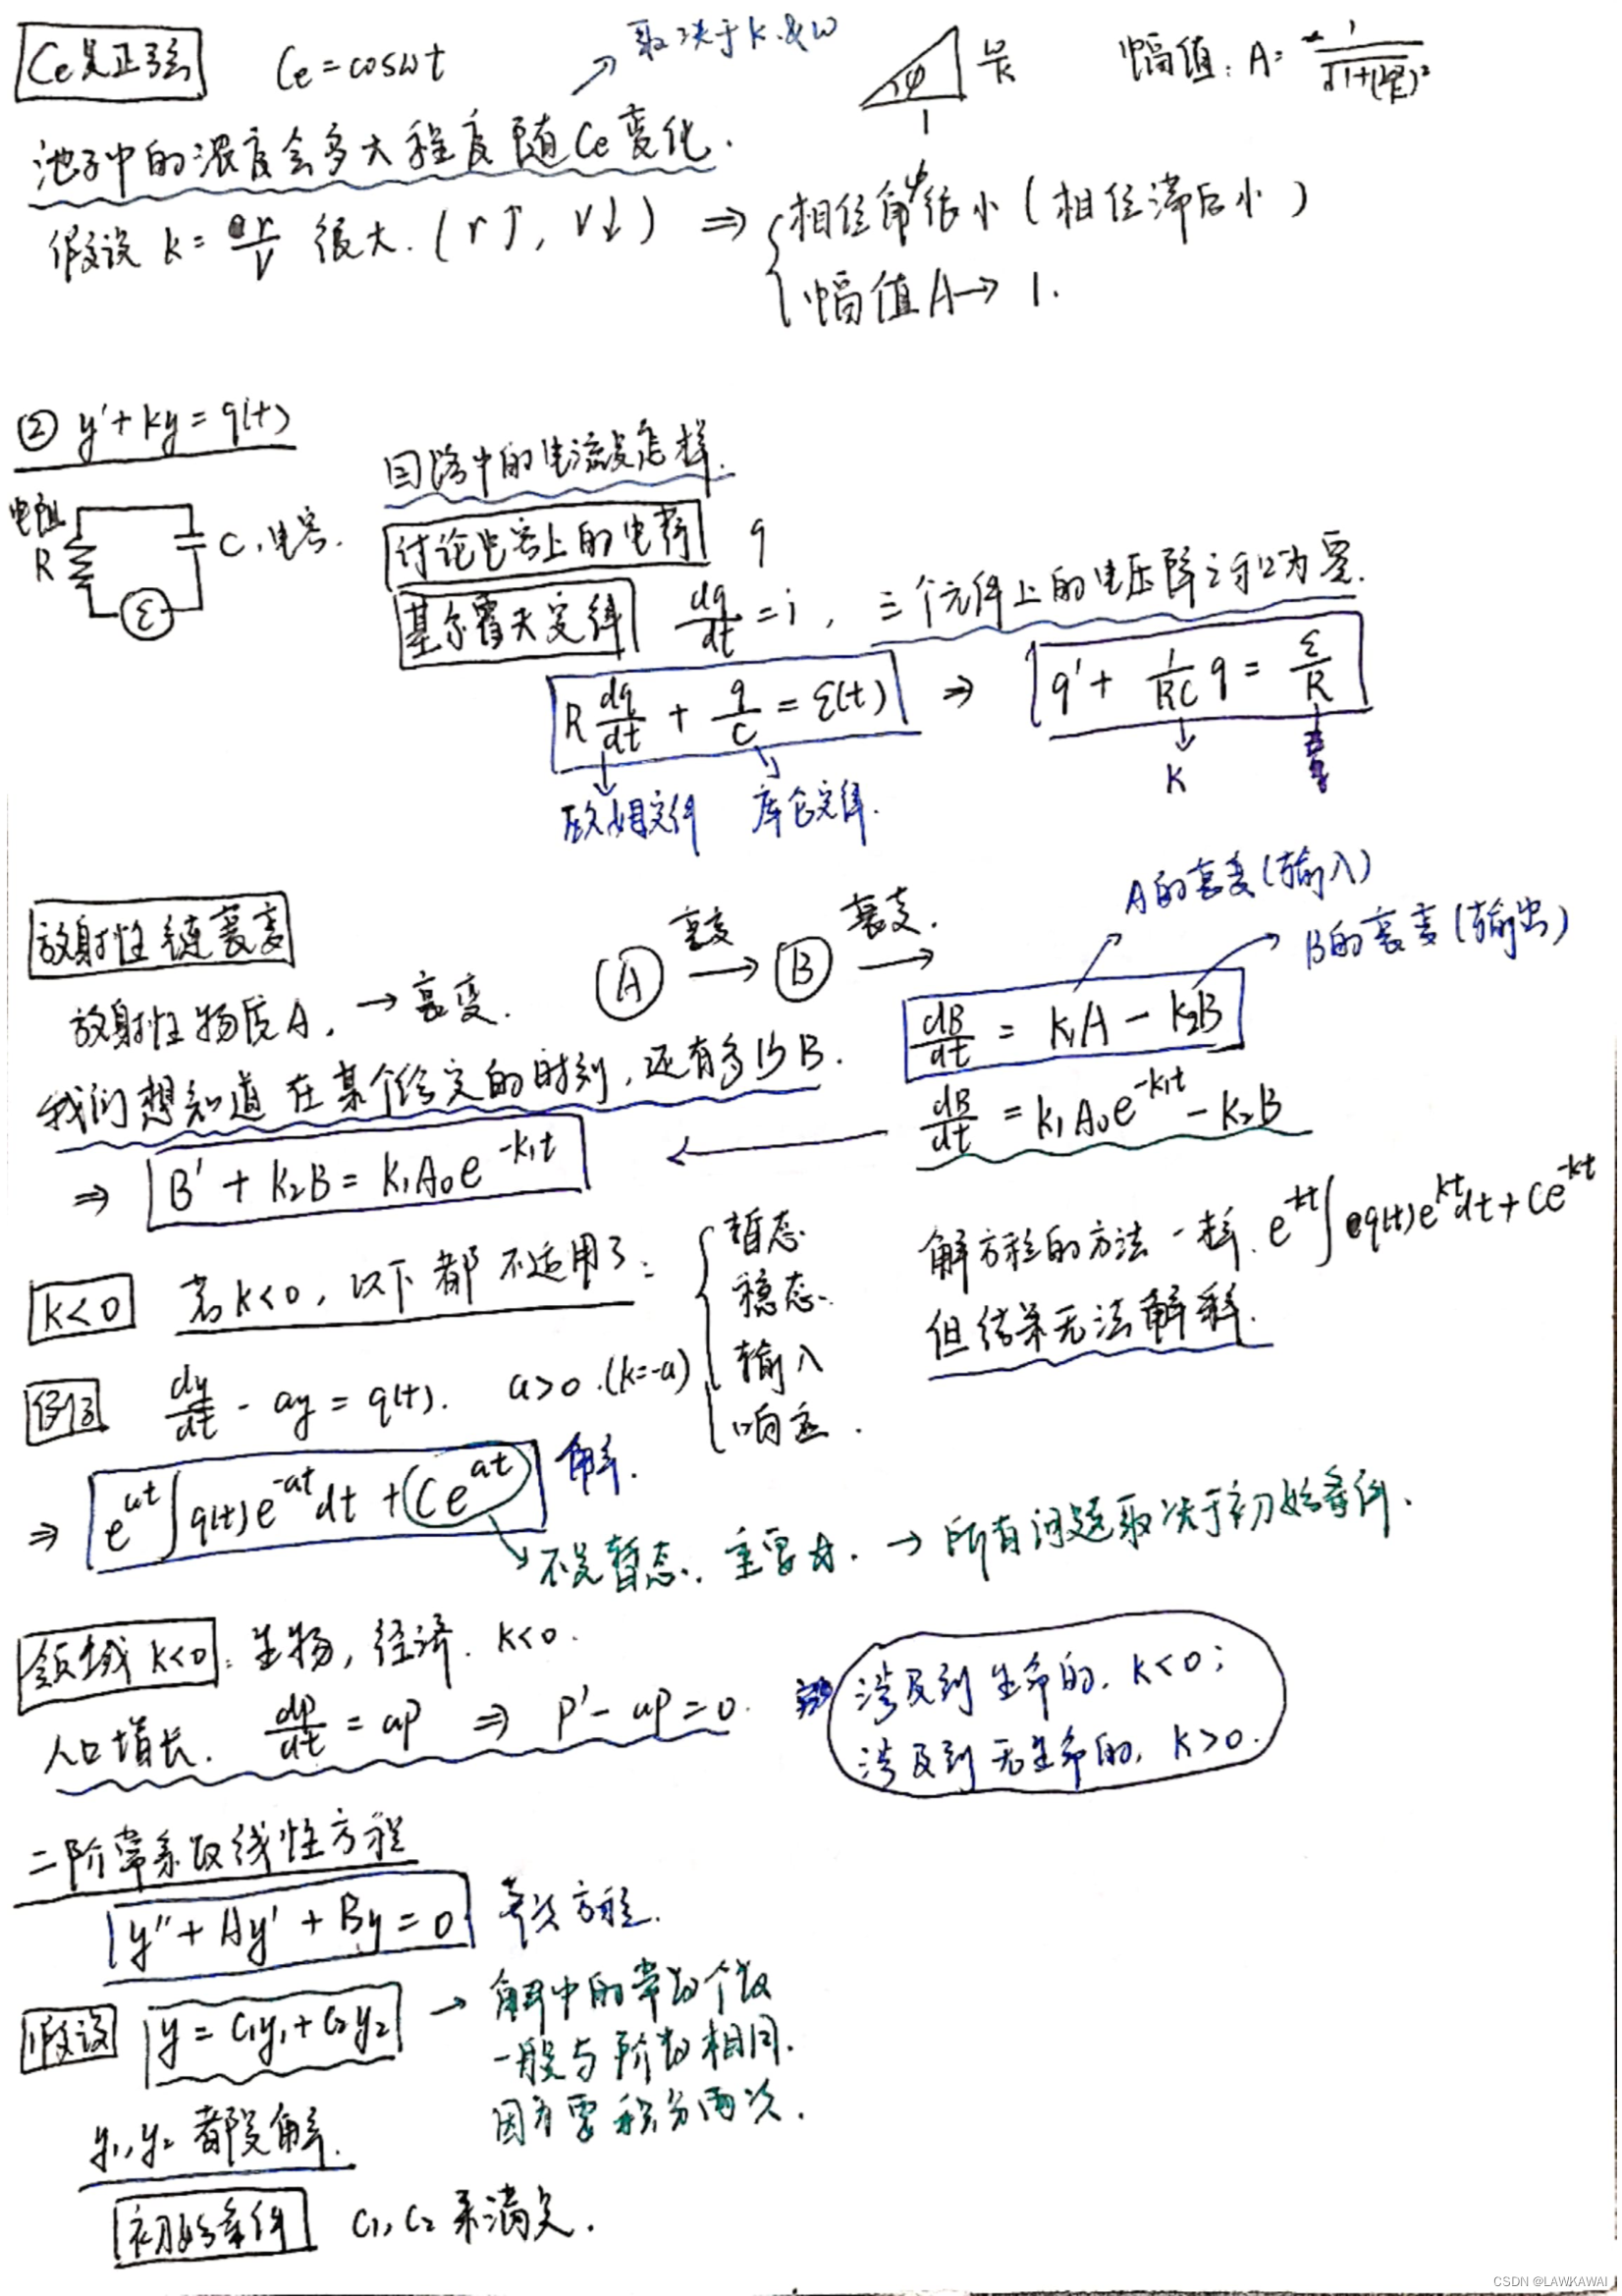 Ce是正弦
Ce = cosωt
→ 取决于 k 和 ω
φ
1
ω/k
幅值: A = 1/√(1+(ω/k)²)
池子中的浓度会多大程度随Ce变化.
假设 k = r/V 很大. (r↑, V↓) ⇒
相位角φ很小 (相位滞后小)
幅值 A → 1.
② y' + ky = q(t)
回路中的电流是怎样.
电阻
R
C, 电容.
ε
讨论电容上的电荷 q
基尔霍夫定律 dq/dt = i, 三个元件上的电压降之和为零.
R dq/dt + q/C = ε(t) ⇒ q' + 1/RC q = ε/R
欧姆定律
库仑定律.
K
放射性链衰变
A 衰变 → B 衰变. →
A的衰变(输入)
B的衰变(输出)
放射性物质A, → 衰变.
dB/dt = k₁A − k₂B
我们想知道在某个给定的时刻, 还有多少B.
dB/dt = k₁A₀e^(-k₁t) − k₂B
⇒ B' + k₂B = k₁A₀e^(-k₁t) ←
k<0
若k<0, 以下都不适用了:
暂态
稳态.
输入
响应.
解方程的方法一样. e^(-kt)∫q(t)e^(kt)dt + Ce^(-kt)
但结果无法解释.
例子 dy/dt − ay = q(t). a>0. (k=-a)
⇒ e^(at)∫q(t)e^(-at)dt + Ce^(at) 解.
不是暂态, 主要为. → 所有问题取决于初始条件.
领域 k<0: 生物, 经济. k<0.
人口增长. dP/dt = aP ⇒ P' − aP = 0.
涉及到生命的, k<0;
涉及到无生命的, k>0.
二阶常系数线性方程
y'' + Ay' + By = 0 齐次方程.
假设 y = C₁y₁ + C₂y₂ → 解中的常数个数
一般与阶数相同.
因为要积分两次.
y₁, y₂ 都是解.
初始条件 C₁, C₂ 来满足.
CSDN @LAWKAWAI